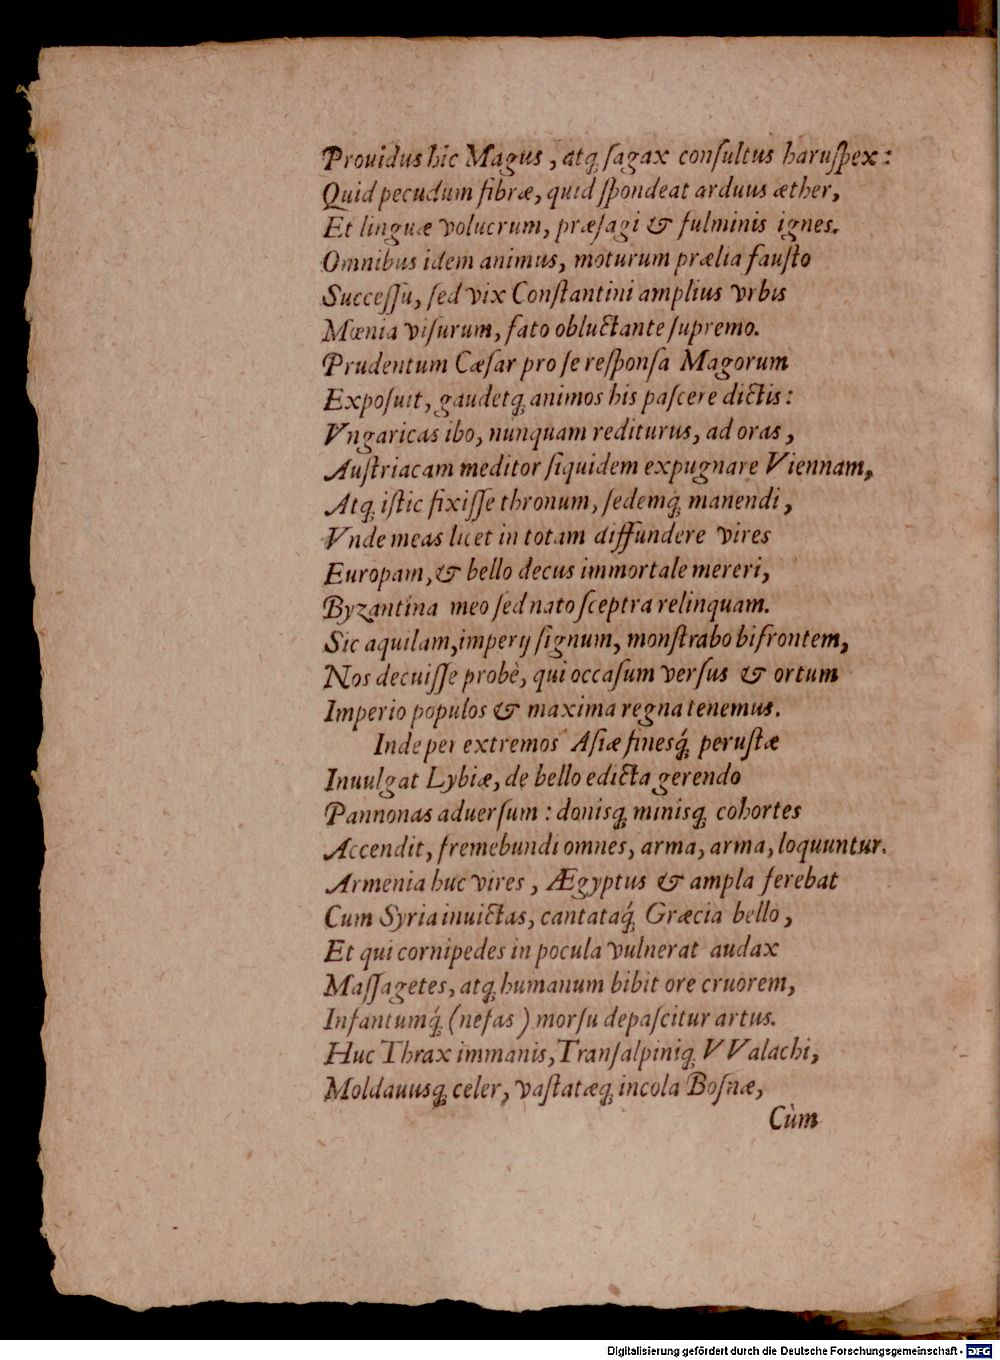 Prouidus hic Magus, atq́; ſagax conſultus haruſpex:
Quid pecudum fibræ, quid ſpondeat arduus æther,
Et linguæ volucrum, præſagi & fulminis ignes.
Omnibus idem animus, moturum prælia fauſto
Succeſſu, ſed vix Conſtantini amplius vrbis
Mœnia viſurum, fato obluctante ſupremo.
Prudentum Cæſar pro ſe reſponſa Magorum
Expoſuit, gaudetq́; animos his paſcere dictis:
Vngaricas ibo, nunquam rediturus, ad oras,
Auſtriacam meditor ſiquidem expugnare Viennam,
Atq́; iſtic fixiſſe thronum, ſedemq́; manendi,
Vnde meas licet in totam diffundere vires
Europam, & bello decus immortale mereri,
Byzantina meo ſed nato ſceptra relinquam.
Sic aquilam, imperij ſignum, monſtrabo bifrontem,
Nos decuiſſe probè, qui occaſum verſus & ortum
Imperio populos & maxima regna tenemus.
Inde per extremos Aſiæ finesq́; peruſtæ
Inuulgat Lybiæ, de bello edicta gerendo
Pannonas aduerſum: donisq́; minisq́; cohortes
Accendit, fremebundi omnes, arma, arma, loquuntur.
Armenia huc vires, Ægyptus & ampla ferebat
Cum Syria inuictas, cantataq́; Græcia bello,
Et qui cornipedes in pocula vulnerat audax
Maſſagetes, atq́; humanum bibit ore cruorem,
Infantumq́; (nefas) morſu depaſcitur artus.
Huc Thrax immanis, Tranſalpiniq́; VValachi,
Moldauusq́; celer, vaſtatæq́; incola Boſnæ,
Cùm
Digitalisierung gefördert durch die Deutsche Forschungsgemeinschaft - DFG